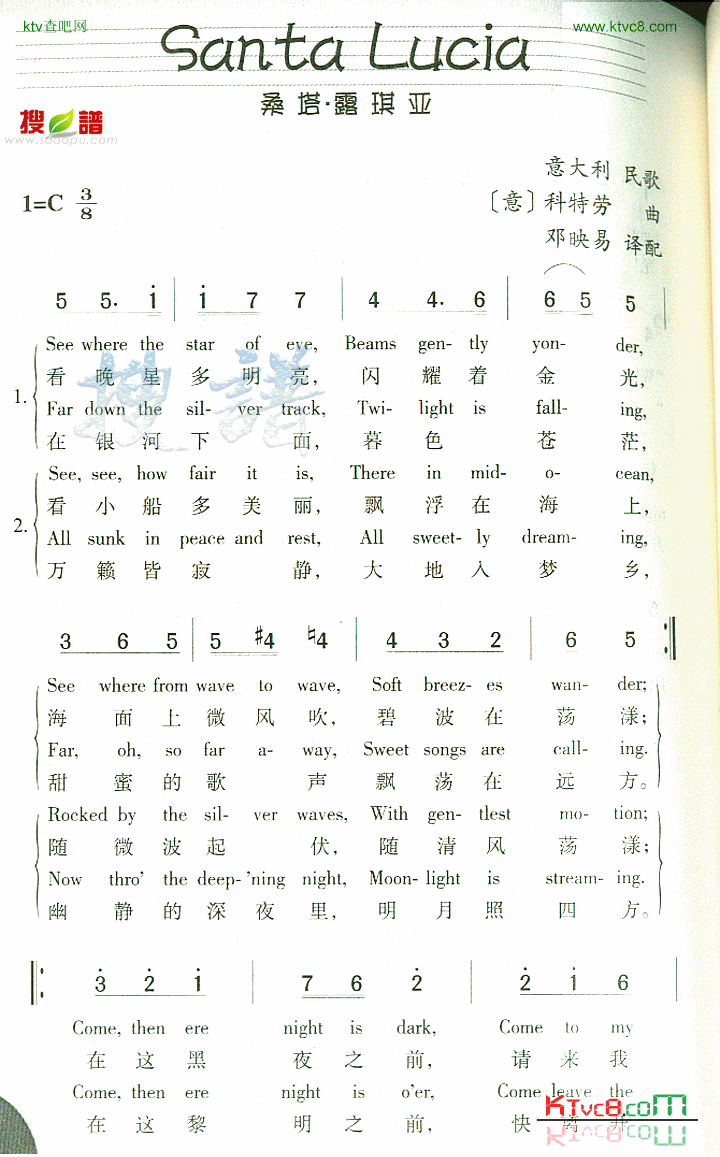 ktv查吧网 www.ktvc8.com
Santa Lucia
桑塔·露琪亚
搜 谱
www.sooopu.com
意大利 民歌
1=C 3/8 〔意〕科特劳 曲
邓映易 译配
5 5· i | i 7 7 | 4 4· 6 | 6 5 5
1. See where the star of eve, Beams gen- tly yon- der,
看 晚 星 多 明 亮, 闪 耀 着 金 光,
Far down the sil- ver track, Twi- light is fall- ing,
在 银 河 下 面, 暮 色 苍 茫,
2. See, see, how fair it is, There in mid- o- cean,
看 小 船 多 美 丽, 飘 浮 在 海 上,
All sunk in peace and rest, All sweet- ly dream- ing,
万 籁 皆 寂 静, 大 地 入 梦 乡,
搜谱
3 6 5 | 5 #4 ♮4 | 4 3 2 | 6 5 :‖
See where from wave to wave, Soft breez- es wan- der;
海 面 上 微 风 吹, 碧 波 在 荡 漾;
Far, oh, so far a- way, Sweet songs are call- ing.
甜 蜜 的 歌 声 飘 荡 在 远 方。
Rocked by the sil- ver waves, With gen- tlest mo- tion;
随 微 波 起 伏, 随 清 风 荡 漾;
Now thro' the deep- 'ning night, Moon- light is stream- ing.
幽 静 的 深 夜 里, 明 月 照 四 方。
‖: 3 2 i | 7 6 2 | 2 i 6
Come, then ere night is dark, Come to my
在 这 黑 夜 之 前, 请 来 我
Come, then ere night is o'er, Come leave the
在 这 黎 明 之 前, 快 离 开
KTvc8.com